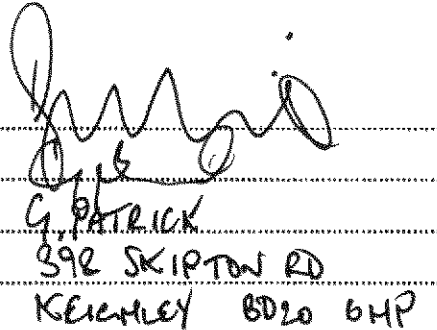 G. PATRICK
392 SKIPTON RD
KEIGHLEY BD20 6HP